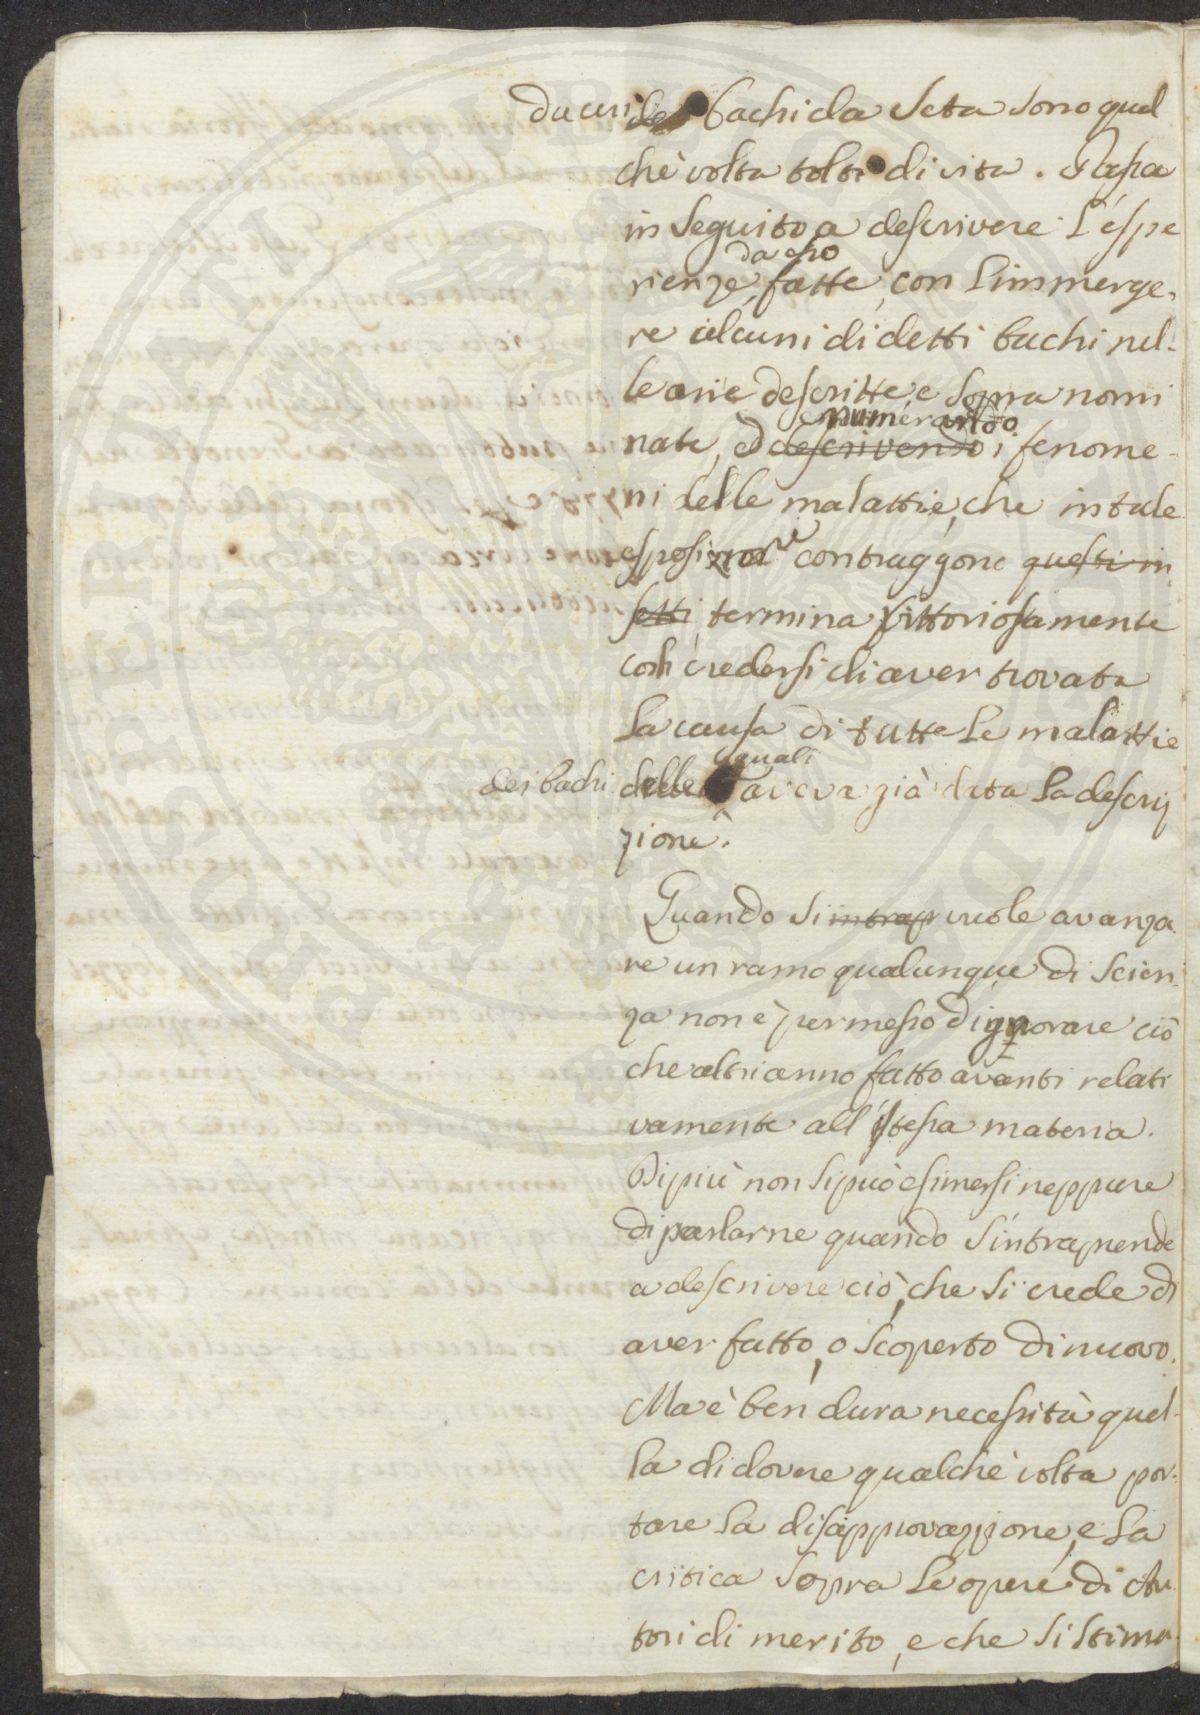 da cui de bachi da Seta sono qual
che volta tolti di vita. Passa
in Seguito a descrivere L'espe
da esso
rienze, fatte, con L'immerge,
re alcuni di detti bachi nel-
le arie descritte, e Sopra nomi
enumerando
nate, ed descrivendo i fenome-
ni delle malattie, che in tale
esposizione contraggono questi in
setti, termina vittoriosamente
col credersi di aver trovata
La causa di tutte Le malattie
quali
dei bachi delle aveva già data La descri
zione.
Quando Si intrap vuole avanza
re un ramo qualunque di Scien
za non è permesso d'ignorare ciò
che altri anno fatto avanti relati
vamente all'istessa materia.
Di più non Si può esimersi neppure
di parlarne quando S'intraprende
a descrivere ciò, che Si crede di
aver fatto, o Scoperto di nuovo.
Ma è ben dura necessità quel-
la di dovere qualche volta por-
tare La disapprovazzione, e La
critica Sopra Le opere di Au
tori di merito, e che Si Stima